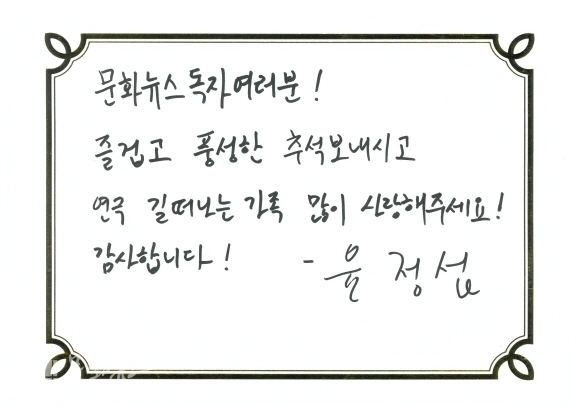 문화뉴스독자여러분!
즐겁고 풍성한 추석보내시고
연극 길떠나는가족 많이 사랑해주세요!
감사합니다! - 윤정섭